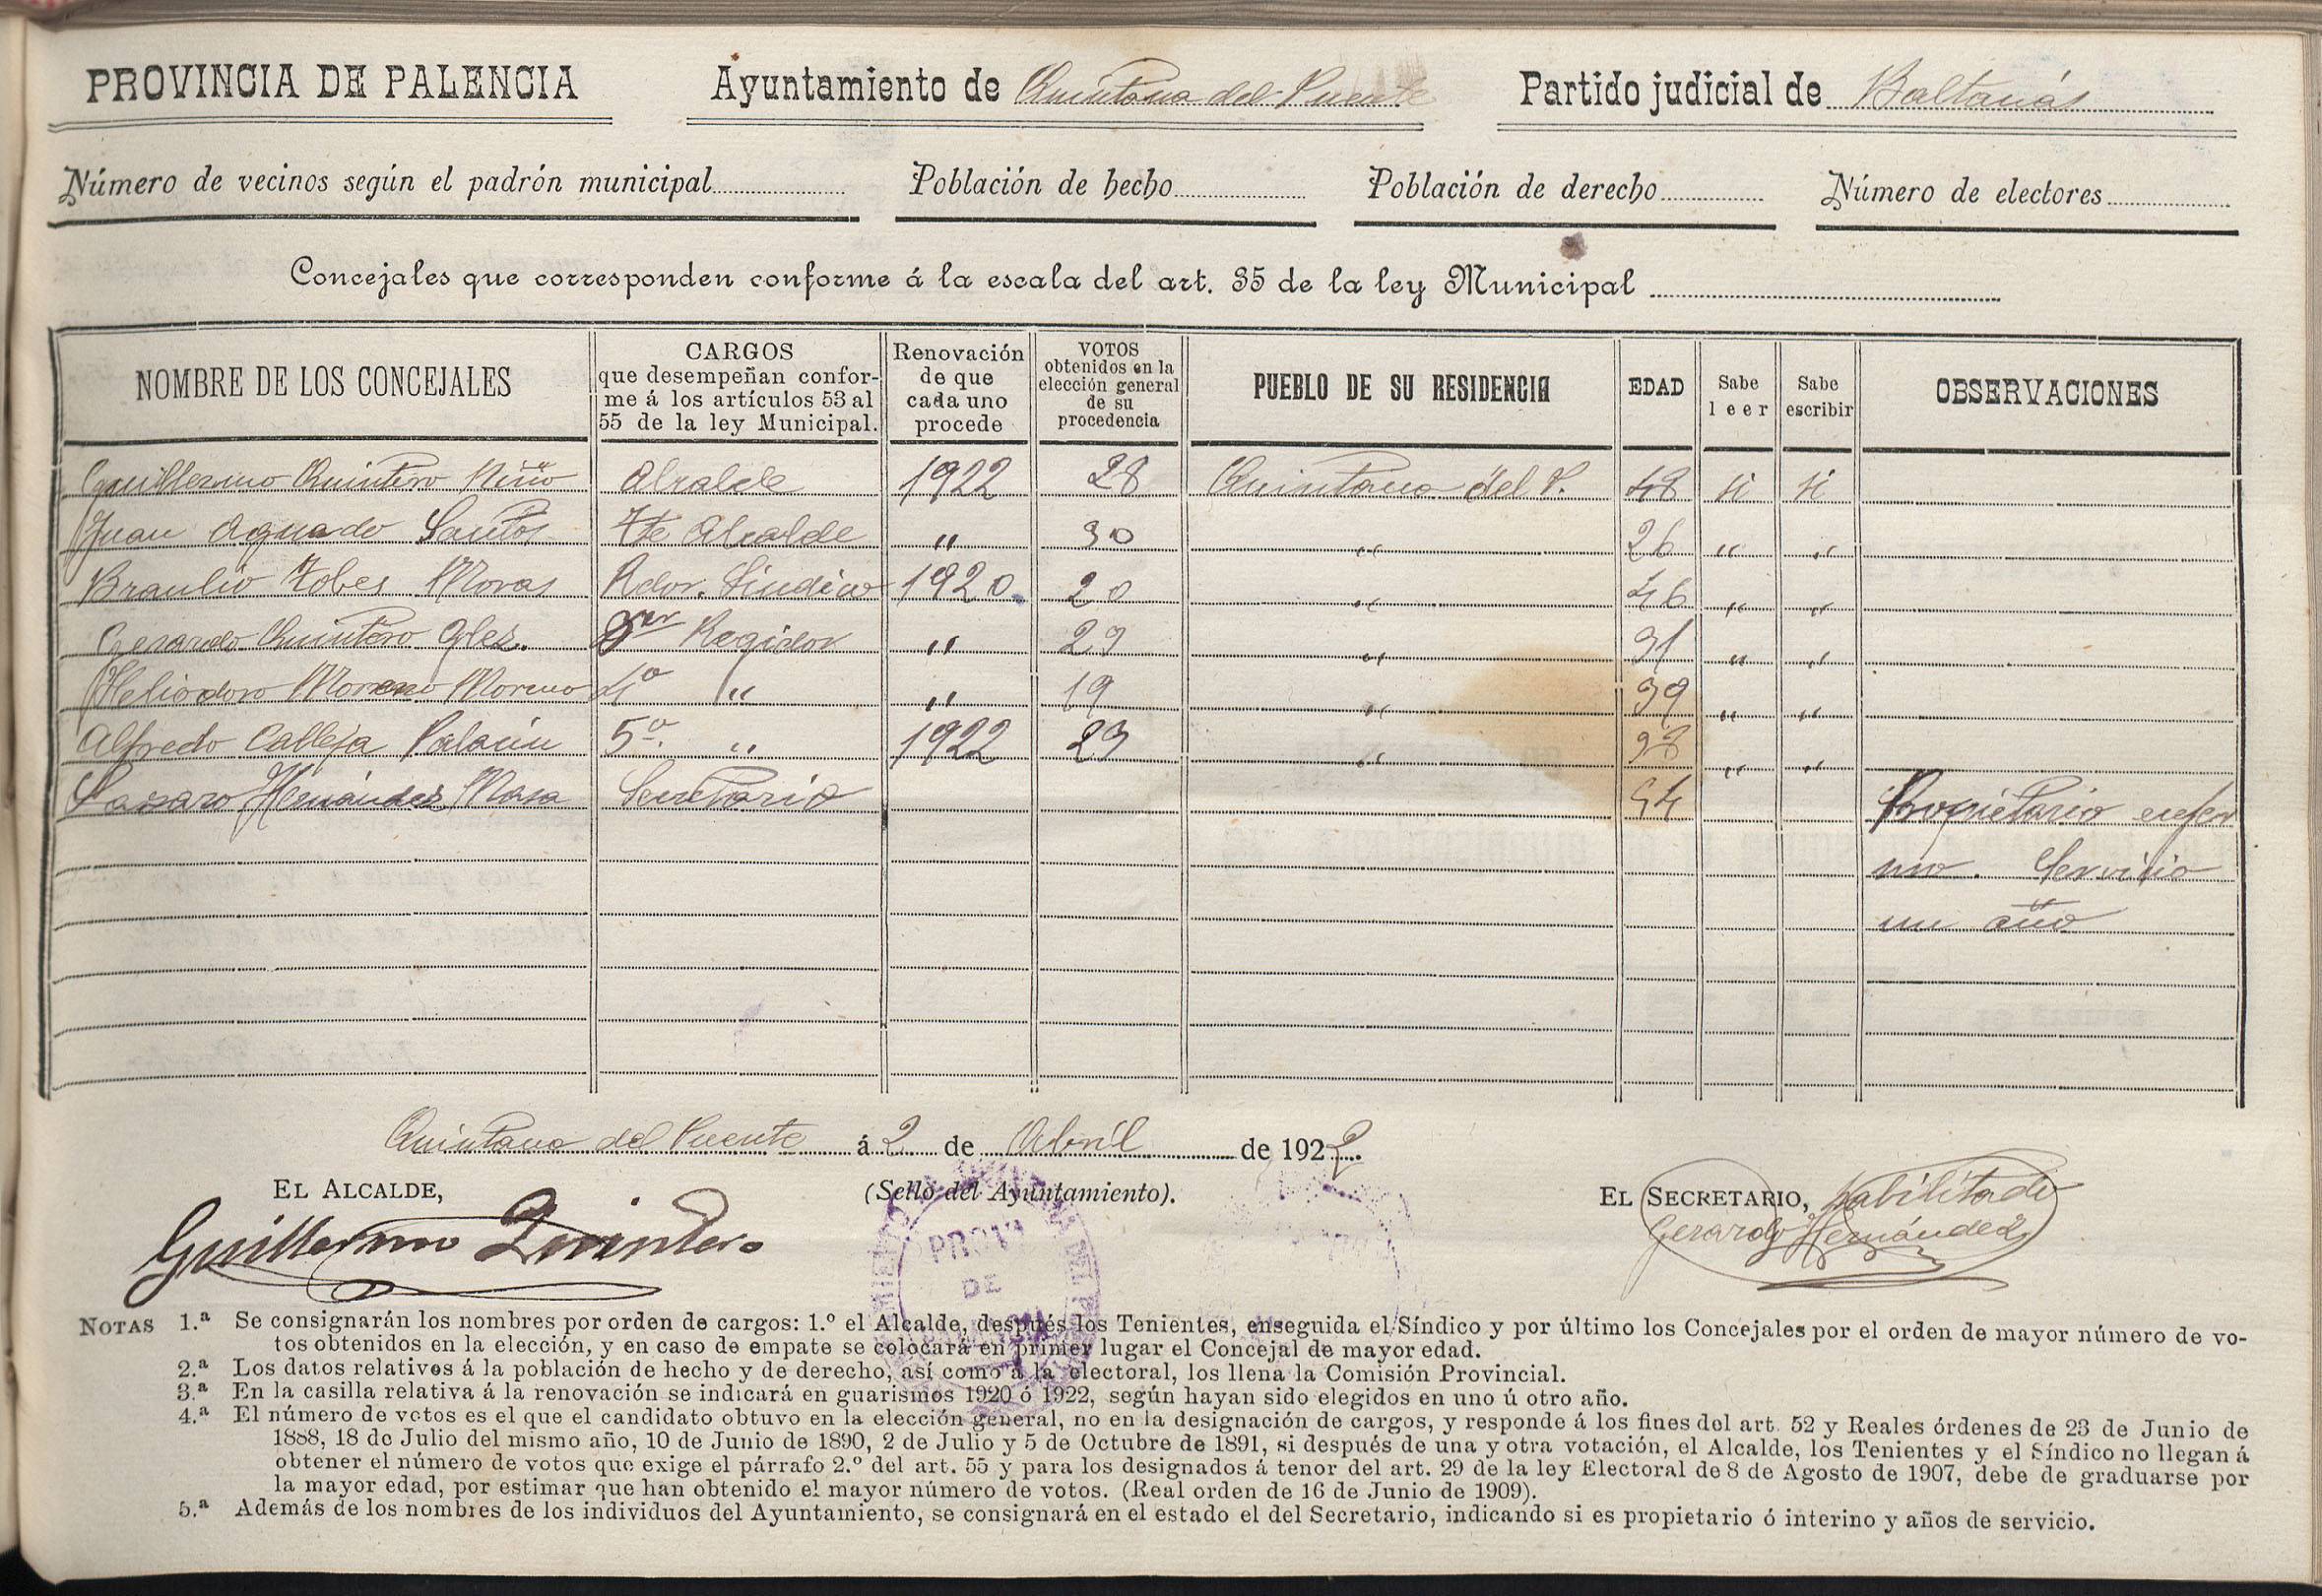 PROVINCIA DE PALENCIA Ayuntamiento de Quintana del Puente Partido judicial de Baltanás
Número de vecinos según el padrón municipal Población de hecho Población de derecho Número de electores
Concejales que corresponden conforme á la escala del art. 35 de la ley Municipal
NOMBRE DE LOS CONCEJALES
CARGOS
que desempeñan confor-
me á los artículos 53 al
55 de la ley Municipal.
Renovación
de que
cada uno
procede
VOTOS
obtenidos en la
elección general
de su
procedencia
PUEBLO DE SU RESIDENCIA
EDAD
Sabe
leer
Sabe
escribir
OBSERVACIONES
Guillermo Quintero Niño Alcalde 1922 28 Quintana del P. 48 si si
Juan Aguado Santos Tte Alcalde " 30 " 26 " "
Braulio Tobes Moras Rdor. Sindico 1920 20 " 46 " "
Gerardo Quintero Glez. 3er Regidor " 23 " 31 " "
Heliodoro Moreno Moreno 4º " " 19 " 39 " "
Alfredo Calleja Palacin 5º " 1922 23 " 38 " "
Lazaro Hernández Masa Secretario 54 Propietario enfer
mo. Servicio
un año
Quintana del Puente á 2 de Abril de 1922.
EL ALCALDE, (Sello del Ayuntamiento). EL SECRETARIO, habilitado
Guillermo Quintero Gerardo Hernández
PROVA
DE
NOTAS 1.ª Se consignarán los nombres por orden de cargos: 1.º el Alcalde, después los Tenientes, enseguida el Síndico y por último los Concejales por el orden de mayor número de vo-
tos obtenidos en la elección, y en caso de empate se colocará en primer lugar el Concejal de mayor edad.
2.ª Los datos relativos á la población de hecho y de derecho, así como á la electoral, los llena la Comisión Provincial.
3.ª En la casilla relativa á la renovación se indicará en guarismos 1920 ó 1922, según hayan sido elegidos en uno ú otro año.
4.ª El número de votos es el que el candidato obtuvo en la elección general, no en la designación de cargos, y responde á los fines del art. 52 y Reales órdenes de 23 de Junio de
1888, 18 de Julio del mismo año, 10 de Junio de 1890, 2 de Julio y 5 de Octubre de 1891, si después de una y otra votación, el Alcalde, los Tenientes y el Síndico no llegan á
obtener el número de votos que exige el párrafo 2.º del art. 55 y para los designados á tenor del art. 29 de la ley Electoral de 8 de Agosto de 1907, debe de graduarse por
la mayor edad, por estimar que han obtenido el mayor número de votos. (Real orden de 16 de Junio de 1909).
5.ª Además de los nombres de los individuos del Ayuntamiento, se consignará en el estado el del Secretario, indicando si es propietario ó interino y años de servicio.